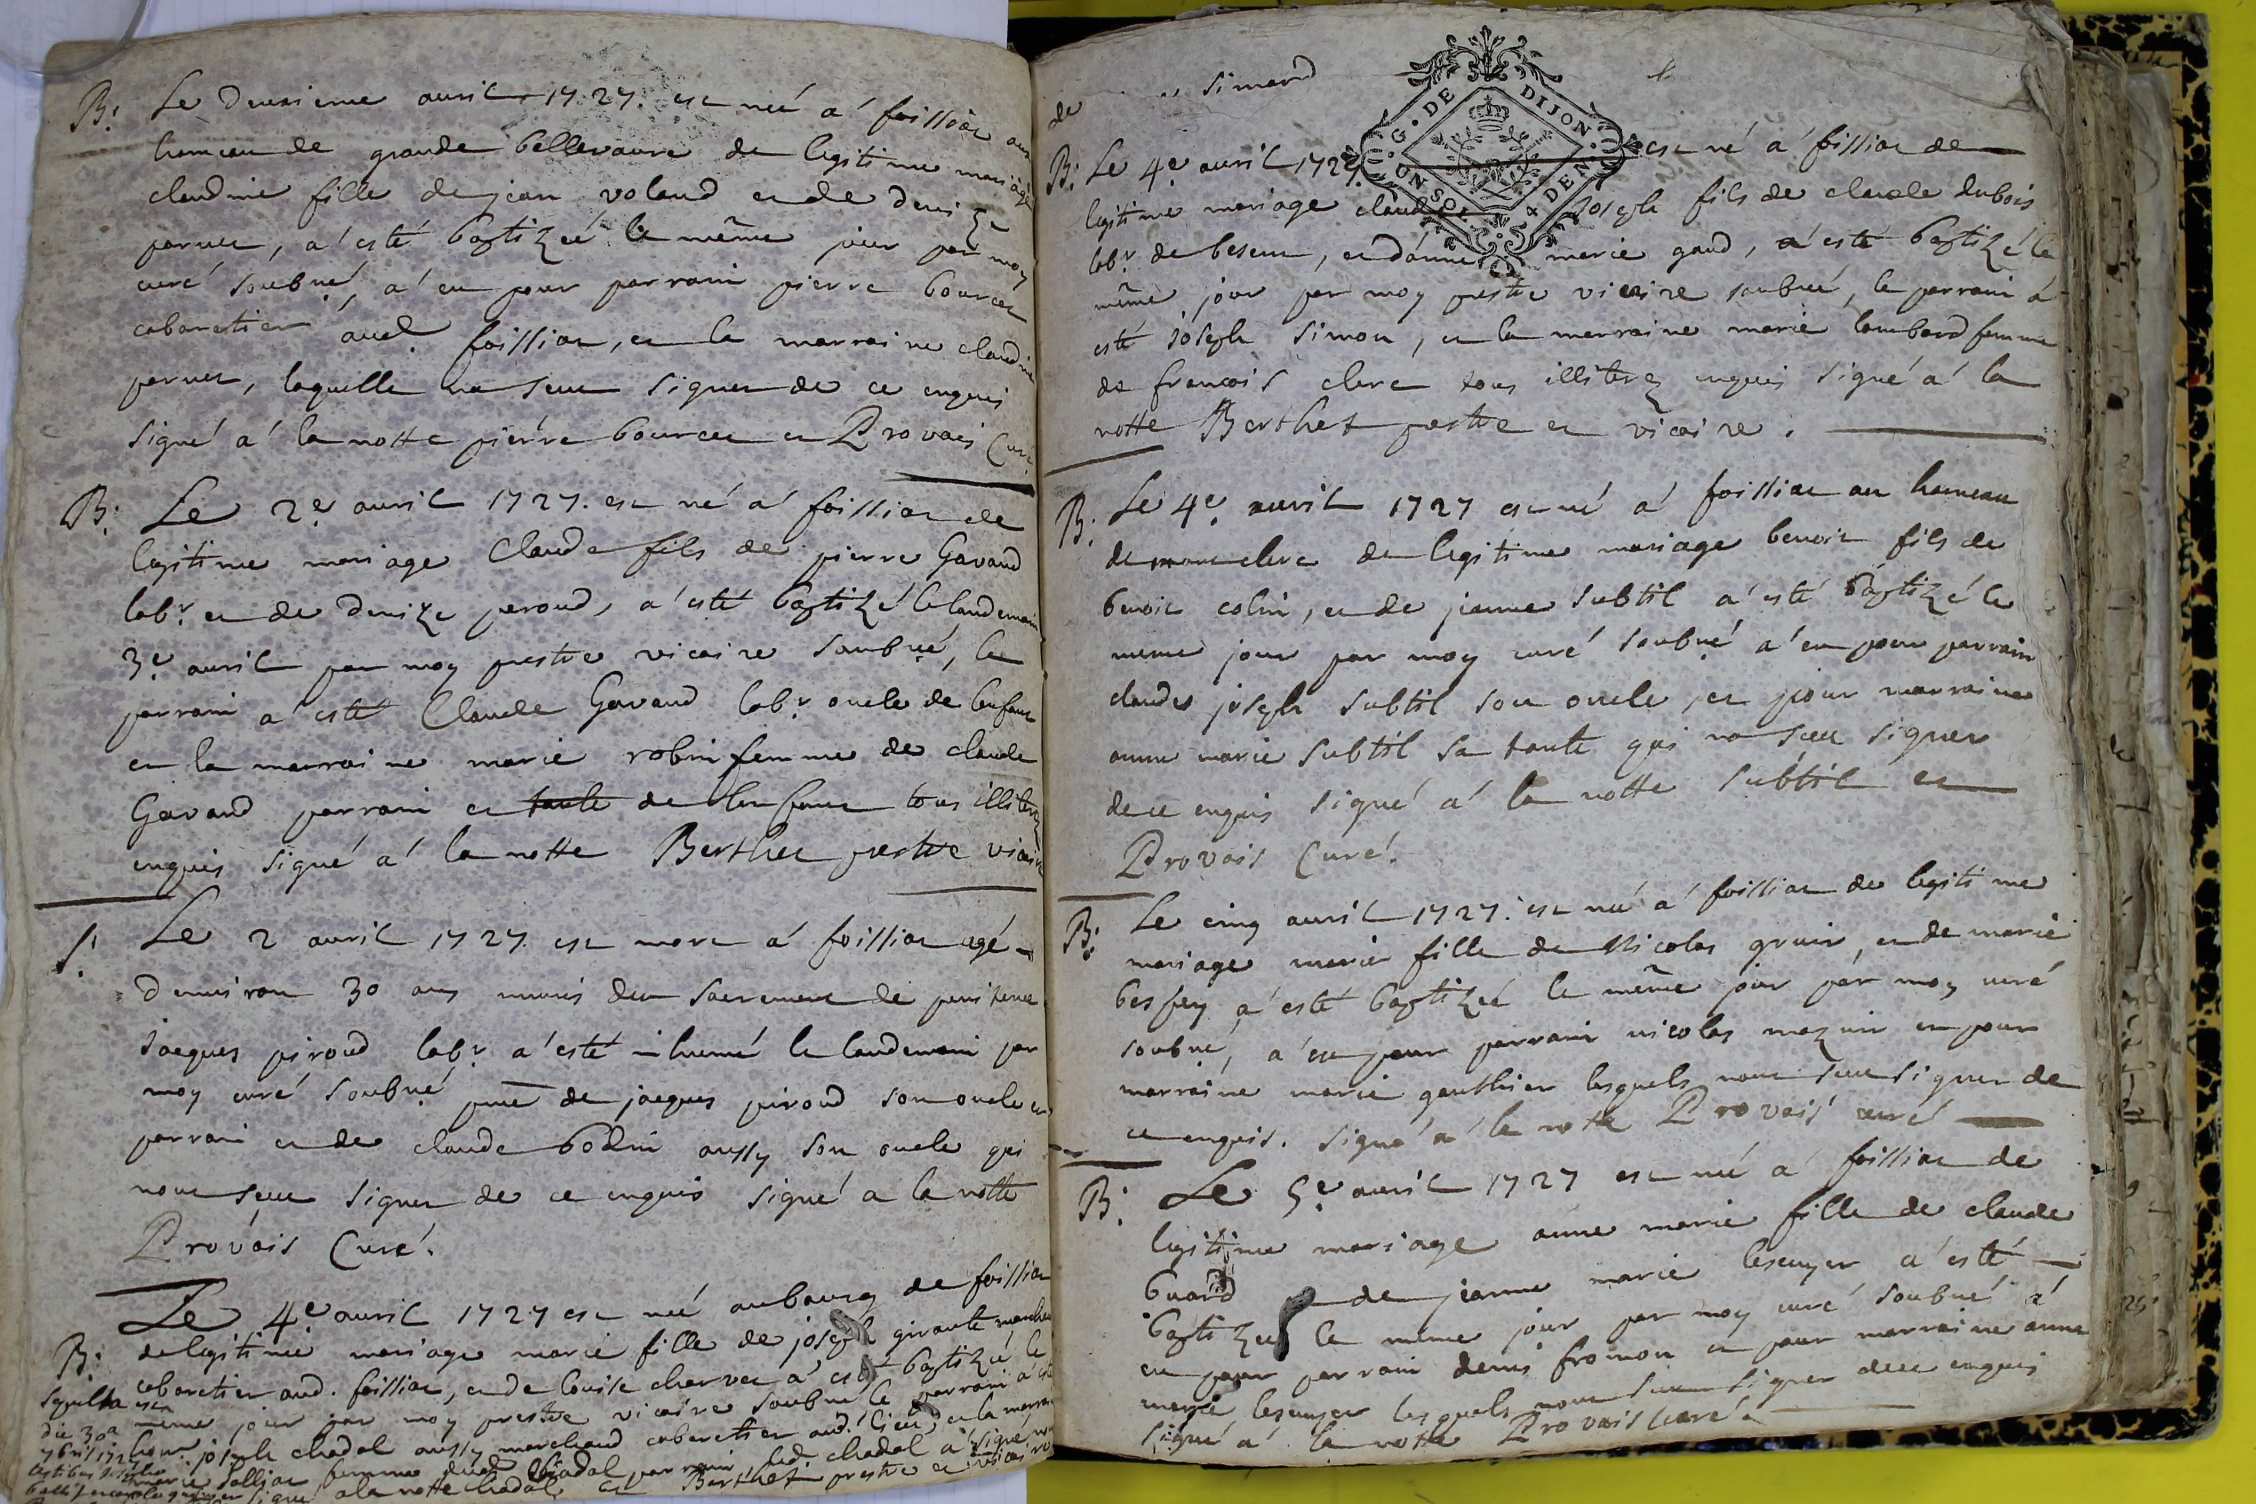 B. Le deuxieme avril 1727. est née a foissiac au
hameau de grande bellevaure de legitime mariage
claudine fille de jean voland et de denize
pernet, a esté baptizée le même jour par moy
curé soubné, a eu pour parrain pierre bourcet
cabaretier aud. foissiat, et la marraine claudine
pernet, laquelle na sceu signer de ce enquis
signé a la notte pierre bourcet et Provais Curé
B. Le 2e. avril 1727. est né a foissiat de
legitime mariage Claude fils de pierre Gavand
labr. et de denize peroud, a esté baptizé le landemain
3e. avril par moy prestre vicaire soubné, le
parrain a esté Claude Gavand labr. oncle de lenfant
et la marraine marie robin femme de claude
Gavand parrain et tante de lenfant tous illiterez
enquis signé a la notte Berthet prestre vicaire
S. Le 2 avril 1727. est mort a foissiat agé
denviron 30 ans munis du sacrement de penitence
Jacques piroud labr. a esté inhumé le landemain par
moy curé soubné pnce de jacques piroud son oncle et
parrain et de claude bodin aussy son oncle qui
nont sceu signer de ce enquis signé a la notte
Provais Curé.
B. Le 4e avril 1727 est née au bourg de foissiat
de legitime mariage marie fille de joseph giraute marchand
cabaretier aud. foissiat, et de louise charvet a esté baptizée le
même jour par moy prestre vicaire soubné le parrain a esté
hon. joseph chadal aussy marchand cabaretier aud. lieu, et la marraine
marie salliat femme dud. chadal parrain led. chadal a signé
signé a la notte chadal et Berthet prestre et vicaire
sepulta est
die 30a
de simard
G. DE DIJON
UN SOL 4 DEN.
B. Le 4e. avril 1727. est né a foissiat de
legitime mariage claude Joseph fils de claude dubois
labr. de beseur, et danne marie gaud, a esté baptizé le
même jour par moy prestre vicaire soubné, le parrain a
esté Joseph simon, et la marraine marie lombard femme
de francois clerc tous illiterez enquis signé a la
notte Berthet prestre et vicaire.
B. Le 4e. avril 1727 est né a foissiat au hameau
de montclerc de legitime mariage benoit fils de
benoit colin, et de jeanne subtil a esté baptizé le
meme jour par moy curé soubné a eu pour parrain
claude joseph subtil son oncle, et pour marraine
anne marie subtil sa tante qui na sceu signer
de ce enquis signé a la notte subtil et
Provais Curé.
B. Le cinq avril 1727. est née a foissiat de legitime
mariage marie fille de Nicolas gruir, et de marie
besfey a esté baptizée le même jour par moy curé
soubné, a eu pour parrain nicolas mazuir et pour
marraine marie gauthier lesquels nont sceu signer de
ce enquis. signé a la notte Provais curé
B. Le 5e. avril 1727 est née a foissiat de
legitime mariage anne marie fille de claude
buard et de jeanne marie lescuyer a esté
baptizée le même jour par moy curé soubné a
eu pour parrain denis fromont et pour marraine anne
marie lescuyer lesquels nont sceu signer de ce enquis
signé a la notte Provais curé.